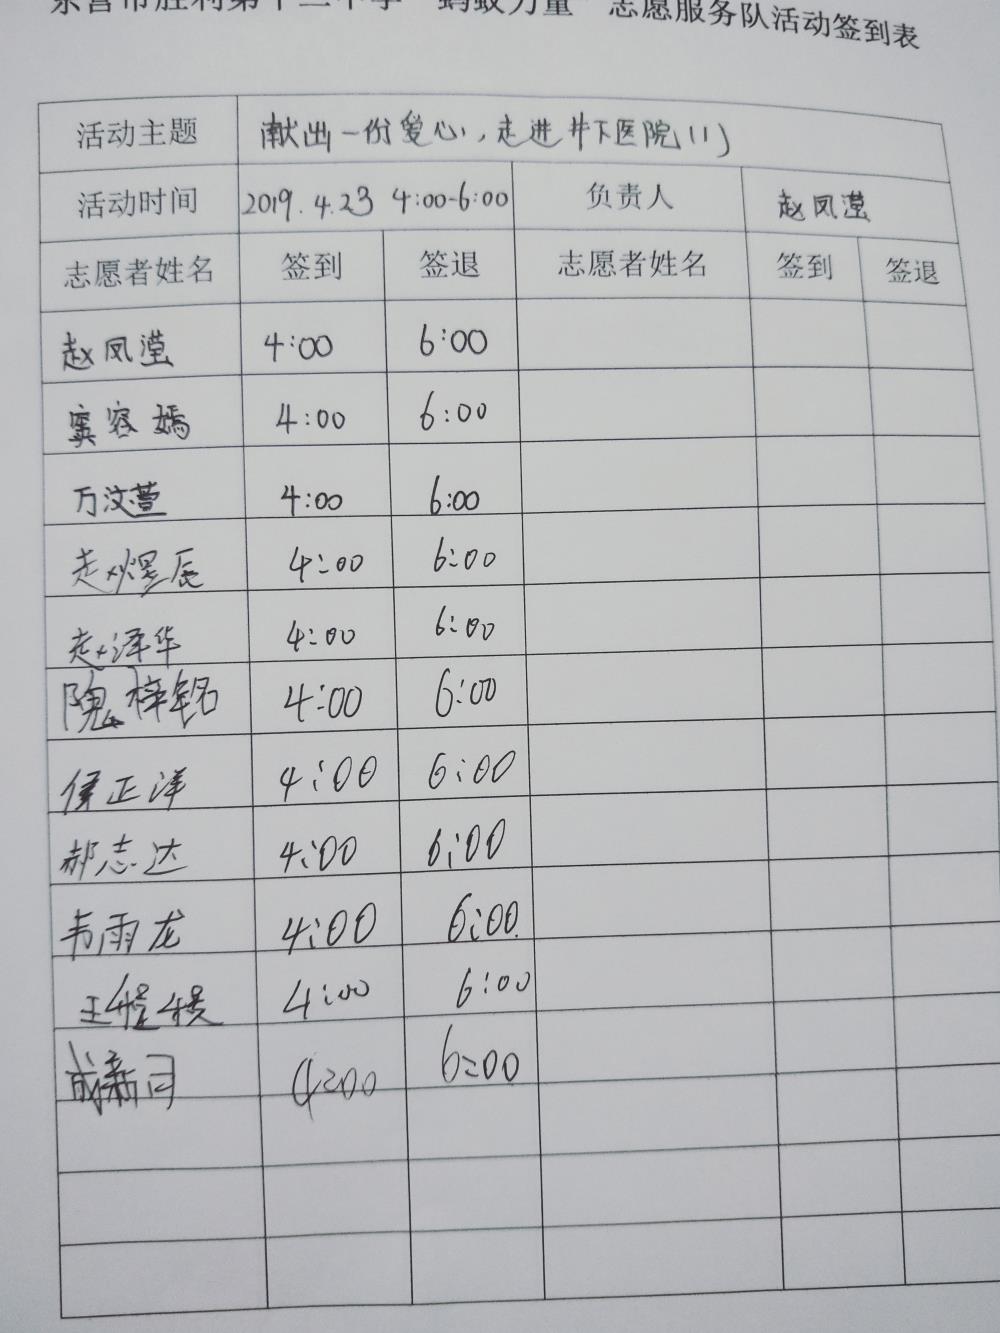 东营市胜利第十二中学“蚂蚁力量”志愿服务队活动签到表
活动主题 献出一份爱心，走进井下医院（1）
活动时间 2019.4.23 4:00-6:00 负责人 赵凤滢
志愿者姓名 签到 签退 志愿者姓名 签到 签退
赵凤滢 4:00 6:00
窦容嫣 4:00 6:00
万汶萱 4:00 6:00
赵煜辰 4:00 6:00
赵泽华 4:00 6:00
隗梓铭 4:00 6:00
侯正洋 4:00 6:00
郝志达 4:00 6:00
韦雨龙 4:00 6:00
王 4:00 6:00
成新 4:00 6:00